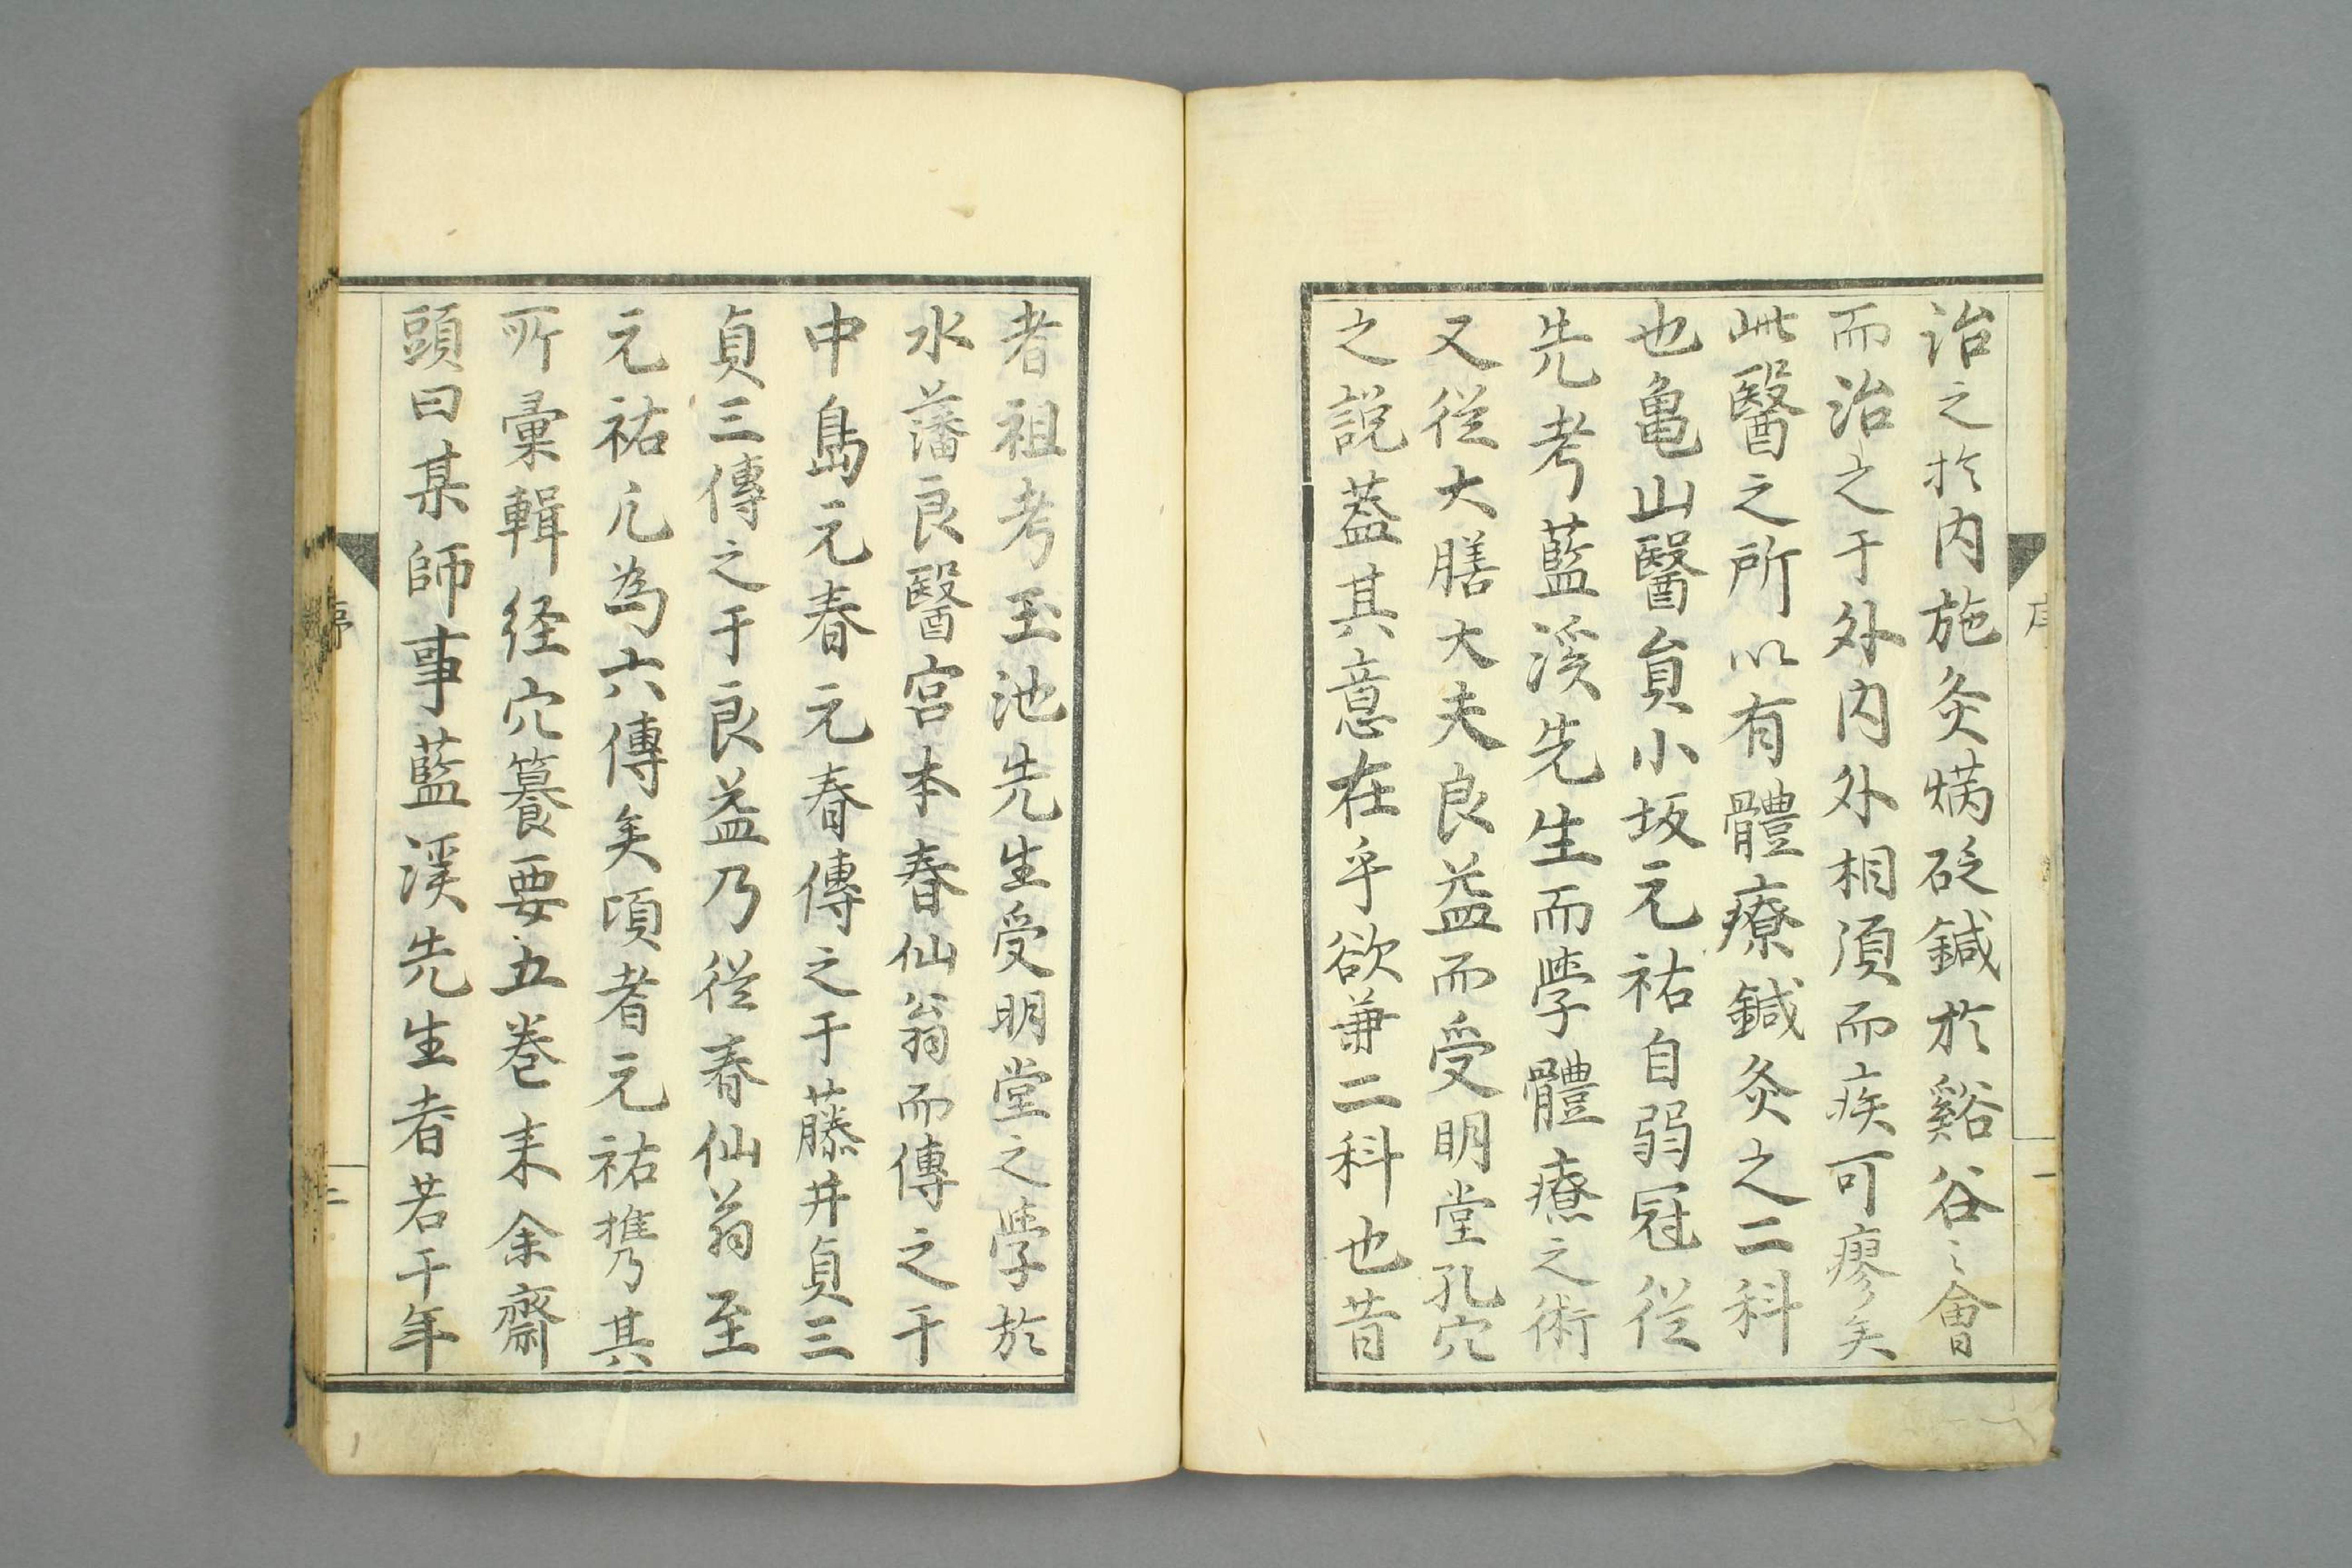 治之於内施灸焫砭鍼於谿谷之會
而治之于外内外相須而疾可瘳矣
此醫之所以有體療鍼灸之二科
也亀山醫員小坂元祐自弱冠従
先考藍溪先生而學體療之術
又従大膳大夫良益而受明堂孔穴
之説葢其意在乎欲兼二科也昔
者祖考玉池先生受明堂之學於
水藩良醫宮本春仙翁而傳之于
中島元春元春傳之于藤井貞三
貞三傳之于良益乃従春仙翁至
元祐凡為六傳矣頃者元祐携其
所彙輯経穴籑要五巻来余齋
頭曰某師事藍溪先生者若干年
序
二